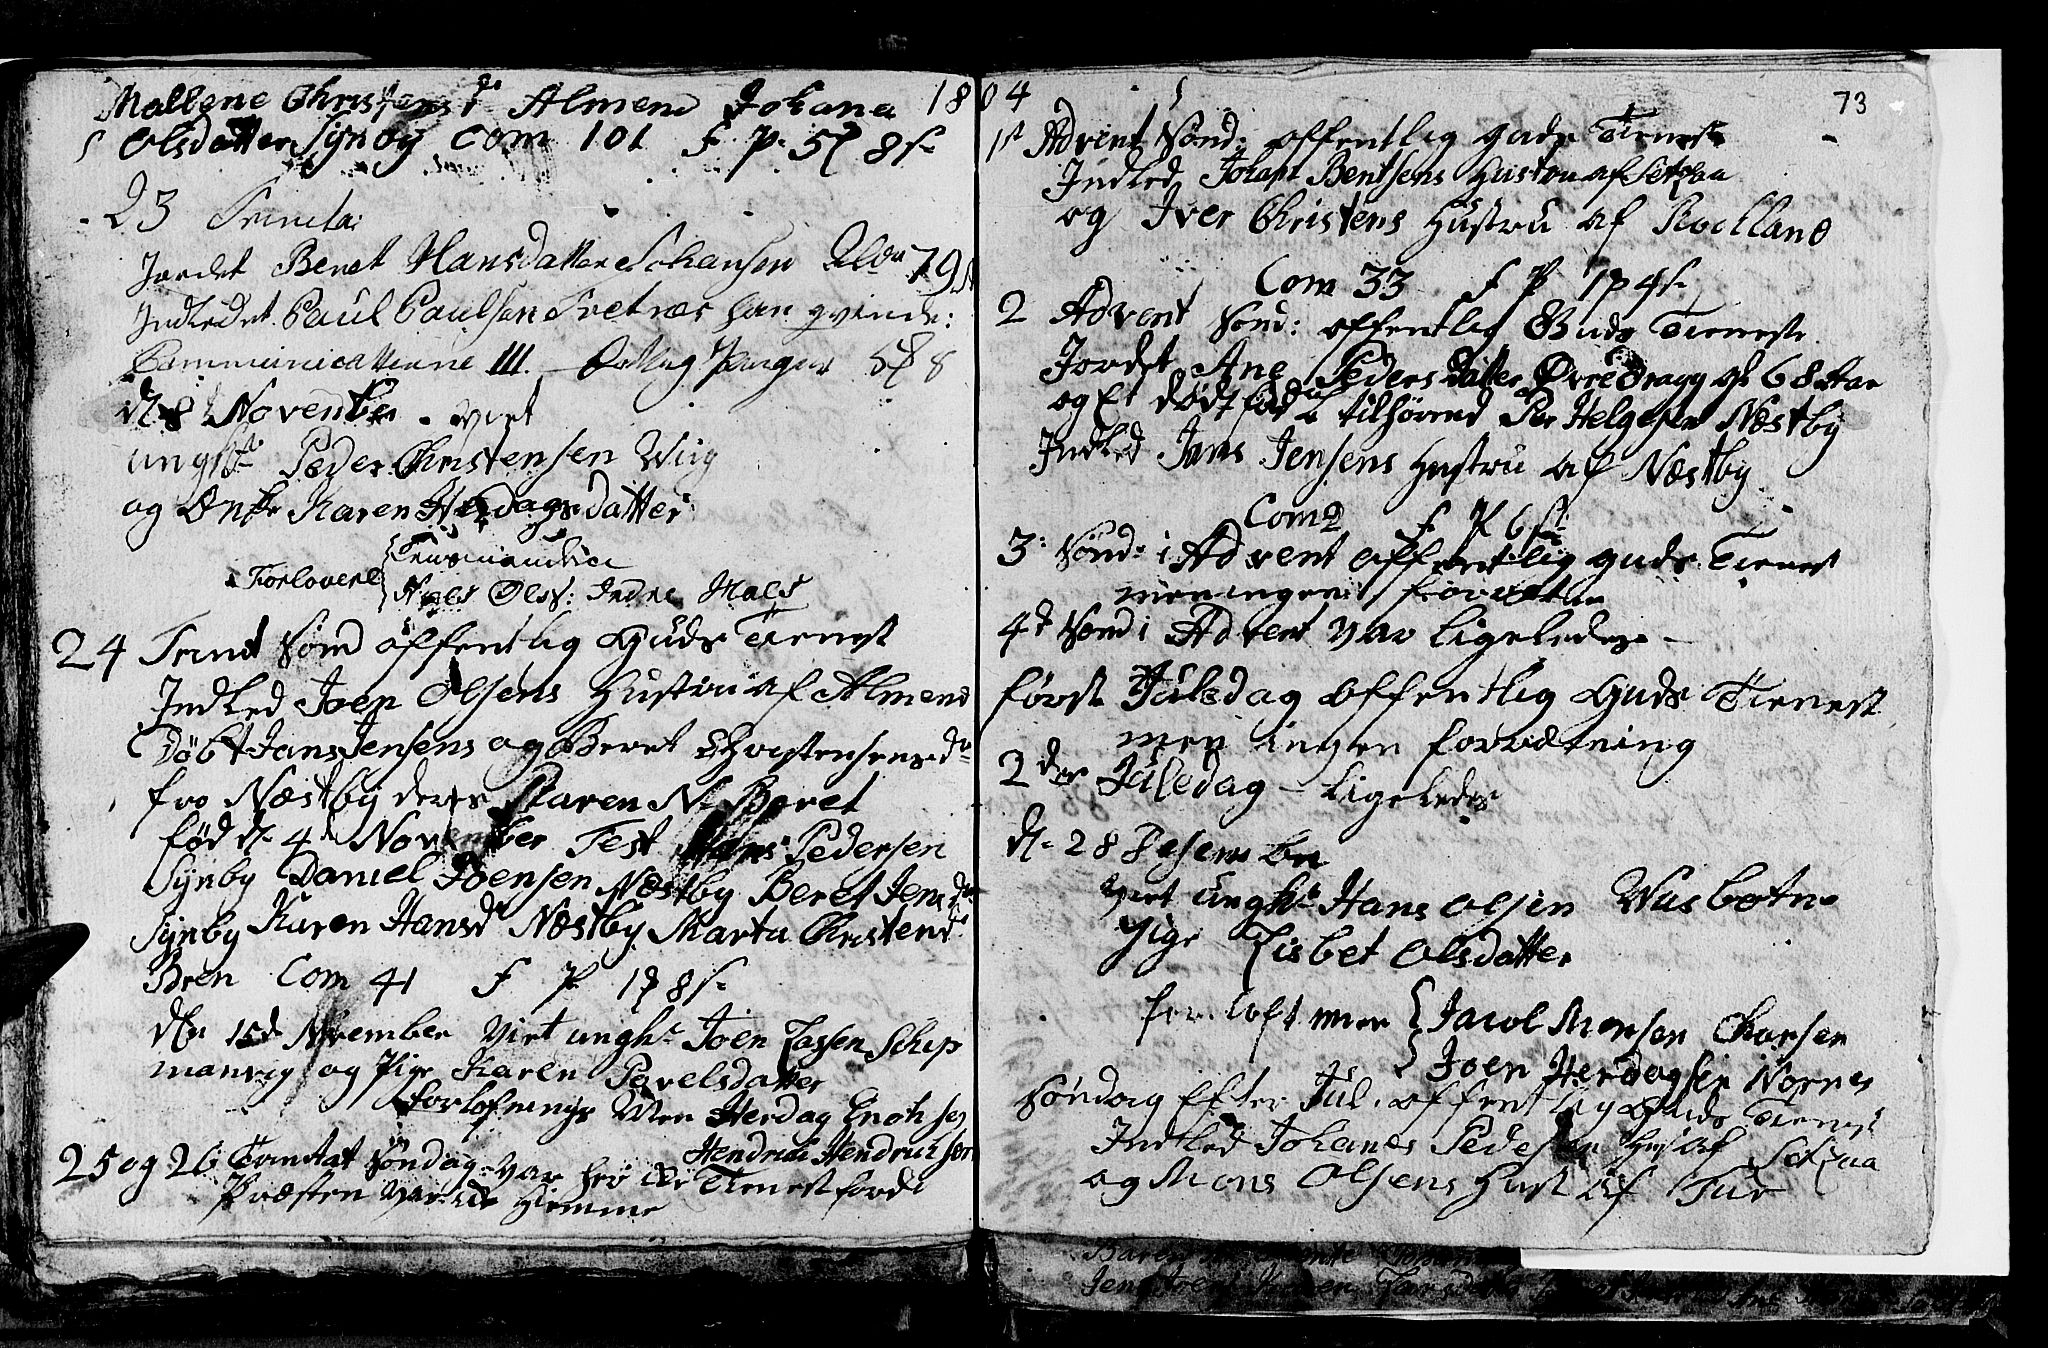 Mallene Christens d. Almend Johana
Olsdatter Synøy Com 101 f P. 5 8 s
23 Trinita:
Jordet Beret Hansdatter Johansen 79
Indledet Paul Paulsen qvinde:
111. 5 8
d 8 November. viet
ungk. Peder Christensen Wiig
og Enke Karen Herdagsdatter
Forlovere
Niels Olss: Indre Hals
24 Trinit Sønd offentlig Guds Tienest
Indled Joen Olsens Hustru af Almend
Døbt Jans Jensens og Beret Christensens d
fro Næstby deres Karen N. Beret
fød d 4d November Test Hans Pedersen
Synby Daniel Joensen Næstby Beret Jens d
Synby Karen Hansd Næstby Marta Christend
Bren Com 41 f P 1 8 s
den 15d November Viet ungk. Joen Lassen Schip
manvig og Pige Karen Povelsdatter
Forlofnings Men Herdag Enoksen
Hendrich Hendrichsen
25 og 26 Trinitat Søndag var her ike Tienest fordi
Præsten var ike Hiemme
1804
73
1st Advent Sønd: offentlig guds Tieneste
Indled Johan Bentsens Hustru af Setraa
og Iver Christens Hustru af Rolland
Com 33 f P 1 4 s
2 Advent Sønd: offentlig Guds Tieneste
Jordet Ane Peders datter Øvre Dragg gl 68 Aar
og Et dødt født tilhørend Per Helgesen Næstby
Indled Jans Jensens Hustru af Næstby
Com 2 f P 6 s
3: Sønd: i Advent offentlig guds Tienest
men ingen
4d Sønd i Advent var ligeledes
først Juledag offentlig Guds Tienest
men ingen forrætning
2der Juledag ligeledes
d. 28 Desember
viet ungk. Hans Olsen Wasbotn
Pige Lisbet Olsdatter
forloft mer Jacob Monsen Corsen
Joen Herdagsen Nornes
Søndag Efter Jul. offentlig Guds Tienest
Indled Johanes Pedersen Hust af Setraa
og Mons Olsens Hust af Tur